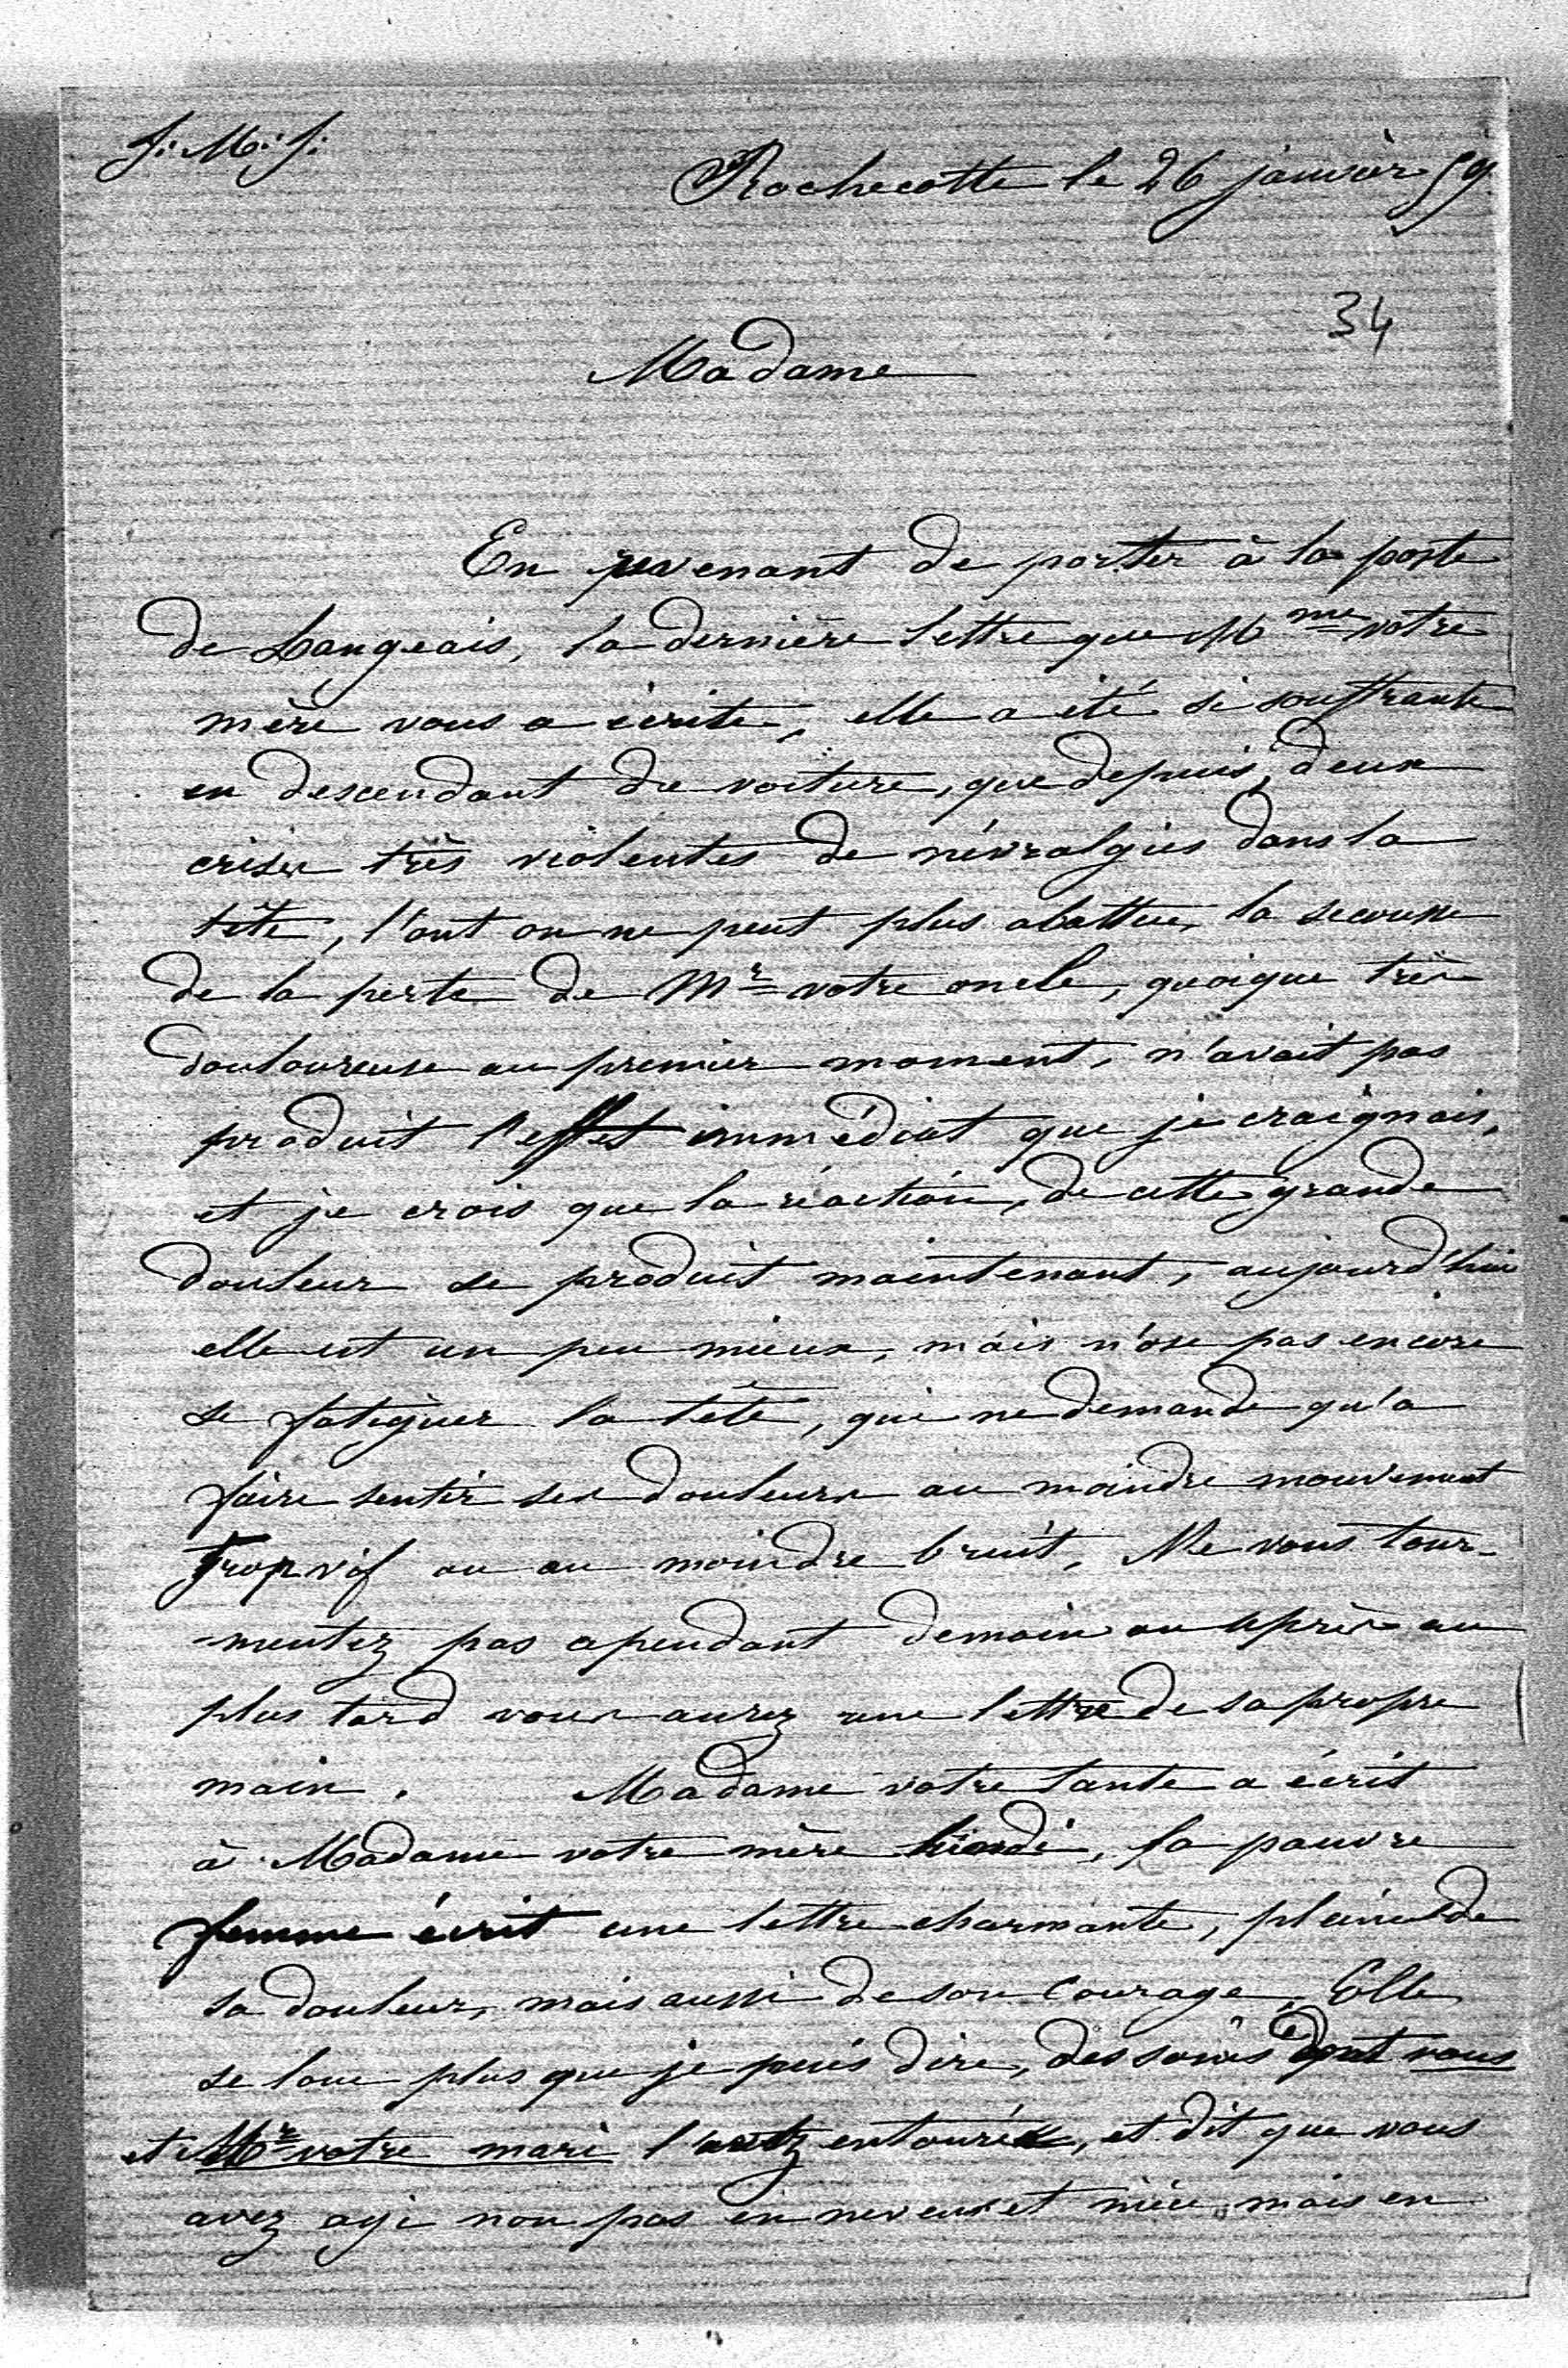 J: M: J:
Rochecotte le 26 janvier 59.
34
Madame
En revenant de porter à la poste
de Langeais, la dernière lettre que Mme votre
mère vous a écrite, elle a été si souffrante
en descendant de voiture, que depuis, deux
crises très violentes de névralgies dans la
tête, l'ont on ne peut plus abattue, la secousse
de la perte de Mr votre oncle, quoique très
douloureuse au premier moment, n'avait pas
produit l'effet immédiat que je craignais,
et je crois que la réaction, de cette grande
douleur se produit maintenant, aujourd'hui
elle est un peu mieux, mais n'ose pas encore
se fatiguer la tête, qui ne demande qu'a
faire sentir ses douleurs au moindre mouvement
trop vif ou au moindre bruit. Ne vous tour-
-mentez pas cependant demain ou après au
plus tard vous aurez une lettre de sa propre
main. Madame votre tante a écrit
à Madame votre mère, la pauvre
femme écrit une lettre charmante, pleine de
sa douleur, mais aussi de son courage, Elle
se loue plus que je puis dire, des soins dont vous
et Mr votre mari l'avez entourée, et dit que vous
avez agi non pas en neveu et nièce, mais en